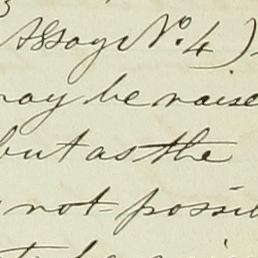 Assay No. 4)
may be raise
but as the
not possi